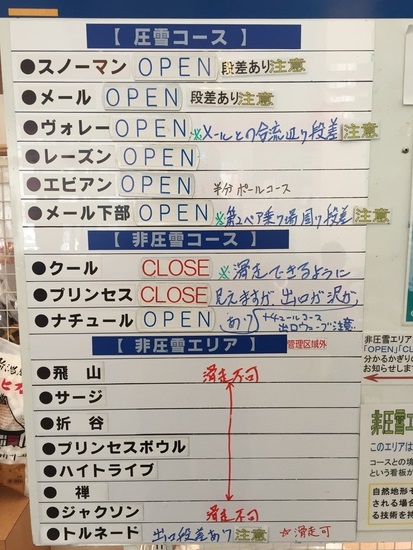 【 圧雪コース 】
●スノーマン OPEN 段差あり 注意
●メール OPEN 段差あり 注意
●ヴォレー OPEN ※メールとの合流辺り段差 注意
●レーズン OPEN
●エビアン OPEN 半分ポールコース
●メール下部 OPEN ※第2ペア乗り場周り段差 注意
【 非圧雪コース 】
●クール CLOSE ※滑走できるように
●プリンセス CLOSE 見えますが、出口が沢が
●ナチュール OPEN あり ナチュールコース
出口ウェーブ注意
【 非圧雪エリア 】 管理区域外
●飛山 滑走不可
●サージ
●折谷
●プリンセスボウル
●ハイトライブ
●禅
●ジャクソン 滑走不可
●トルネード 出口段差あり 注意 ☆滑走可
非圧雪エリア
「OPEN」「CL
分かるかぎりの
お知らせしま
非圧雪エ
このエリアは
コースとの境
という看板か
自然地形そ
される場合
る技術を持